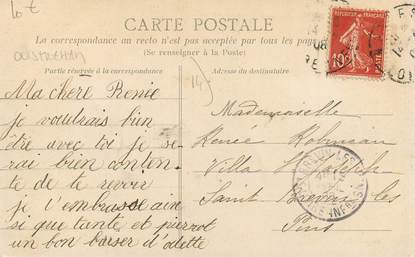 10 €
OUISTREHAM
CARTE POSTALE
La correspondance au recto n'est pas acceptée par tous les pays
(Se renseigner à la Poste)
Partie réservée à la correspondance
Adresse du destinataire
Ma chere Renée
je voudrais bien
être avec toi je se
rai bien conten
te de te revoir
je t'embrasse ain
si que tante et pierrot
un bon baiser d'odette
14
Mademoiselle
Renée Robineau
Villa
Saint Brevin les
Pins
REPUBLIQUE FRANÇAISE
10